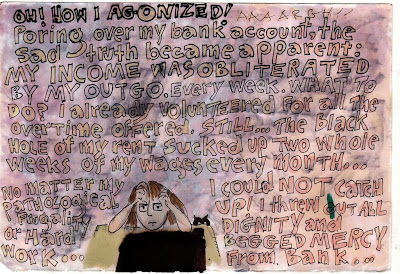 OH! HOW I AGONIZED!
Poring over my bank account, the
sad truth became apparent:
MY INCOME WAS OBLITERATED
BY MY OUTGO. Every week. WHAT TO
DO? I already volunteered for all the
overtime offered. STILL... The black
Hole of my rent sucked up two whole
weeks of my wages every month...
NO matter my
Pathological
Frugality
or Hard
work...
I could NOT CATCH
up! I threw OUT ALL
DIGNITY and
BEGGED MERCY
From Bank...